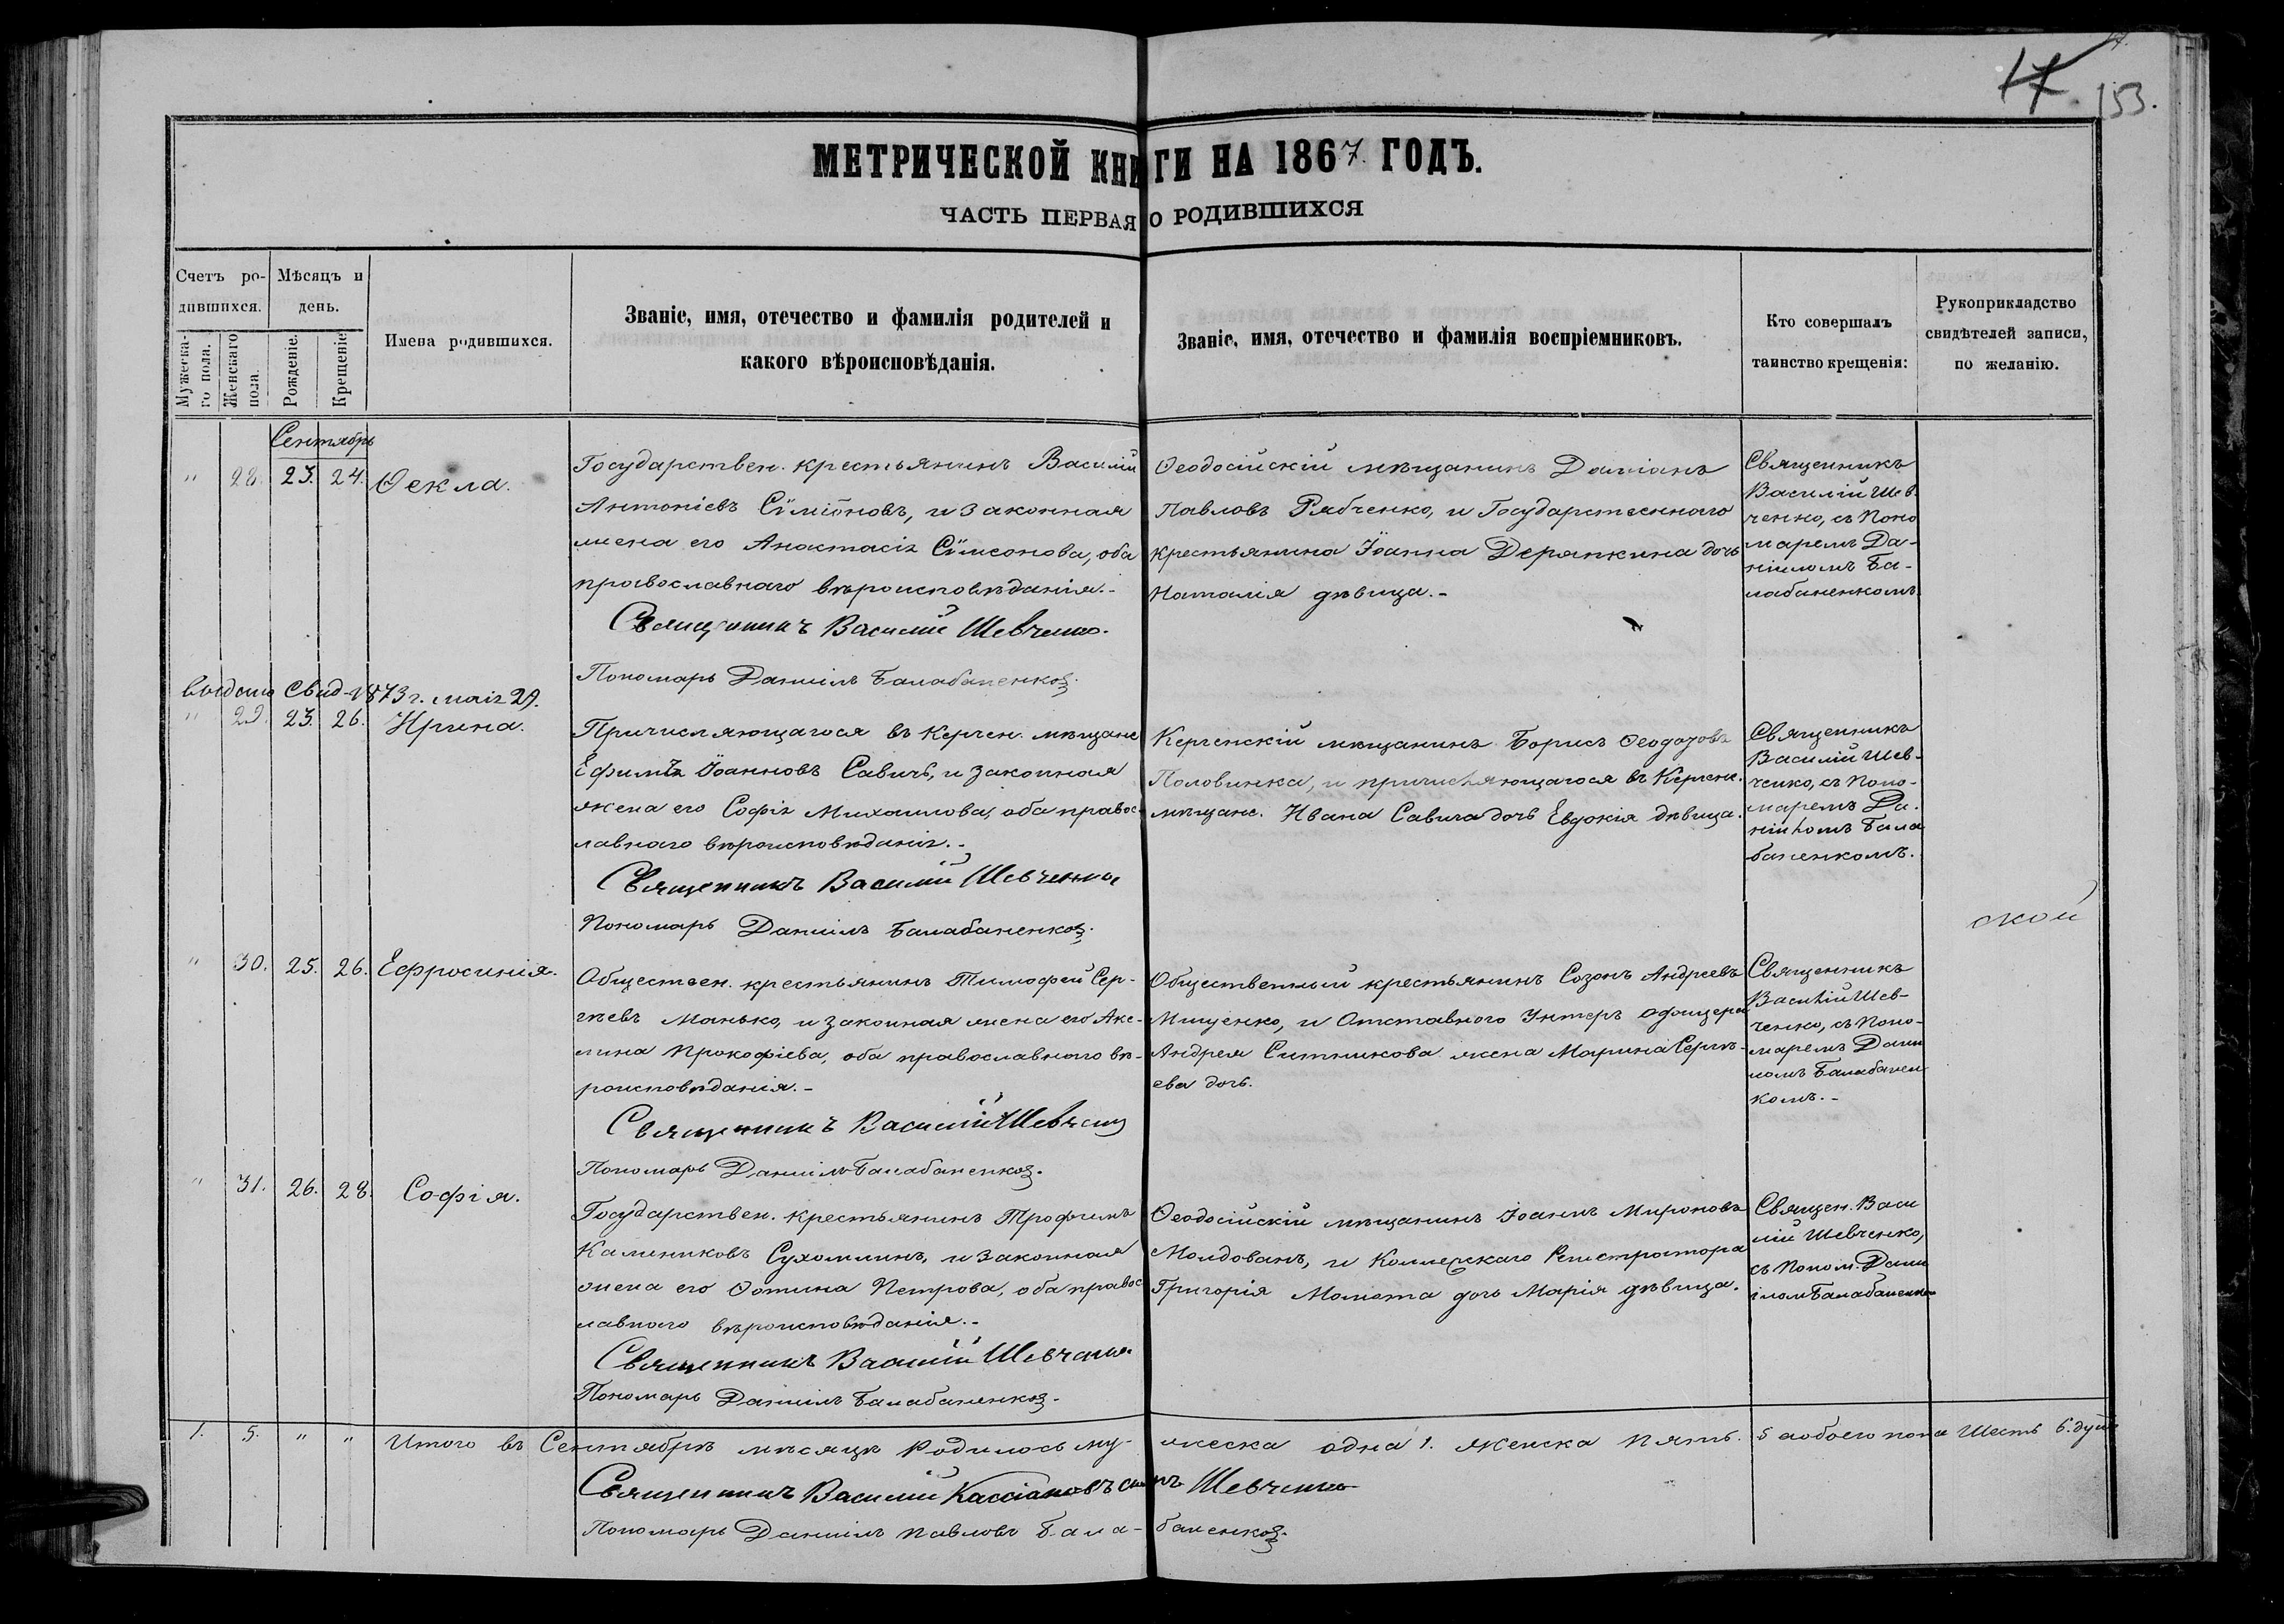 17
153.
МЕТРИЧЕСКОЙ КНИГИ НА 1867. ГОДЪ.
ЧАСТЬ ПЕРВАЯ О РОДИВШИХСЯ
Счетъ ро-
дившихся.
Мужеска-
го пола.
Женскаго
пола.
Мѣсяцъ и
день.
Рожденіе.
Крещеніе.
Имена родившихся.
Званіе, имя, отечество и фамилія родителей и
какого вѣроисповѣданія.
Званіе, имя, отечество и фамилія воспріемниковъ.
Кто совершалъ
таинство крещенія:
Рукоприкладство
свидѣтелей записи,
по желанію.
Сентябрь
" 28. 23. 24. Ѳекла.
Государствен. крестьянинъ Василій
Антоніевъ Сѵміоновъ, и законная
жена его Анастасія Сѵмеонова, оба
православнаго вѣроисповѣданія.-
Священникъ Василій Шевченко.
Пономарь Даніилъ Балабаненко.
Ѳеодосійскій мѣщанинъ Даміанъ
Павловъ Рябченко, и Государственнаго
крестьянина Іоанна Деряпкина дочь
Наталія дѣвица.-
Священникъ
Василій Шев-
ченко, съ Поно
маремъ Да-
ніиломъ Ба-
лабаненкомъ
Выдано Свид. 1873 г. маія 29.
" 29. 23. 26. Ирина.
Причисляющагося въ Керчен. мѣщане
Ефимъ Іоанновъ Савичъ, и законная
жена его Софія Михаилова, оба правос-
лавнаго вѣроисповѣданія.-
Священникъ Василій Шевченко
Пономарь Даніилъ Балабаненко.
Керченскій мѣщанинъ Борисъ Ѳеодозовъ
Половинка, и причисляющагося въ Керчен.
мѣщане. Ивана Савича дочь Евдокія дѣвица.
Священникъ
Василій Шев-
ченко, съ Поно-
маремъ Да-
ніиломъ Бала
баненкомъ.
ской
" 30. 25. 26. Ефросинія.
Обществен. крестьянинъ Тимофей Сер-
гѣевъ Манько, и законная жена его Аке-
лина Прокофіева, оба православнаго вѣ-
роисповѣданія.-
Священникъ Василій Шевченко
Пономарь Даніилъ Балабаненко.
Общественный крестьянинъ Созонъ Андреевъ
Мищенко, и Отставного Унтеръ офицера
Андрея Ситникова жена Марина Сергѣ-
ева дочь.
Священникъ
Василій Шев-
ченко, съ Поно-
маремъ Дани
ломъ Балабанен
комъ.-
" 31. 26. 28. Софія.
Государствен. крестьянинъ Трофимъ
Калениковъ Сухомлинъ, и законная
жена его Фотина Петрова, оба правос
лавнаго вѣроисповѣданія.-
Священникъ Василій Шевченко
Пономарь Даніилъ Балабаненко.
Ѳеодосійскій мѣщанинъ Іоаннъ Мироновъ
Молдованъ, и Коллежскаго Регистратора
Григорія Момота дочь Марія дѣвица.
Священ. Васи
лій Шевченко,
съ Поном. Дани
іломъ Балабаненко
1. 5. " " Итого въ Сентябрѣ мѣсяцѣ Родилось му- жеска одна 1. женска Пять. 5 а обоего пола Шесть 6. душъ
Священникъ Василій Кассіановъ сынъ Шевченко
Пономарь Даніилъ Павловъ Бала- баненко.